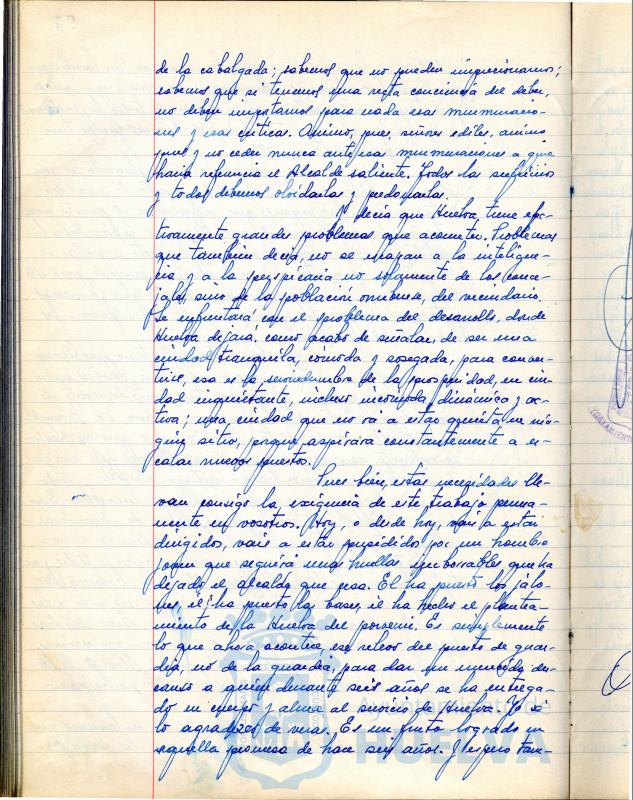 de la cabalgada; sabemos que no pueden impresionarnos;
sabemos que si tenemos una recta conciencia del deber,
no deben importarnos para nada esas murmuracio-
nes y esas críticas. Animo, pues, señores ediles, animo
pues y no ceder nunca ante esas murmuraciones a que
hacia referencia el Alcalde saliente. Todos las sufrimos
y todos debemos olvidarlas y perdonarlas.
Y decía que Huelva, tiene efec-
tivamente grandes problemas que acometer. Problemas
que también decía, no se escapan a la inteligen-
cia y a la perspicacia no solamente de los conce-
jales, sino de la población onubense, del vecindario.
Se enfrentará con el problema del desarrollo, donde
Huelva dejará, como acabo de señalar, de ser una
ciudad tranquila, cómoda y sosegada, para conver-
tirse, esa es la servidumbre de la prosperidad, en ciu-
dad inquietante, incluso incómoda, dinámica y ac-
tiva; una ciudad que no vá a estar quieta en nin-
gún sitio, porque aspirará constantemente a es-
calar nuevos puestos.
Pues bien, estas necesidades lle-
van consigo la exigencia de este trabajo perma-
nente en vosotros. Hoy, o desde hoy, vais a estar
dirigidos, vais a estar presididos por un hombre
joven que seguirá unas huellas imborrables que ha
dejado el alcalde que cesa. El ha puesto los jalo-
nes, él ha puesto las bases, él ha hecho el plantea-
miento de la Huelva del porvenir. Es simplemente
lo que ahora acontece, ese relevo del puesto de guar-
dia, no de la guardia, para dar un merecido des-
canso a quien durante seis años se ha entrega-
do en cuerpo y alma al servicio de Huelva. Yo se
lo agradezco de veras. Es un fruto logrado en
aquella promesa de hace seis años. Y espero tam-
Ayuntamiento de
HUELVA